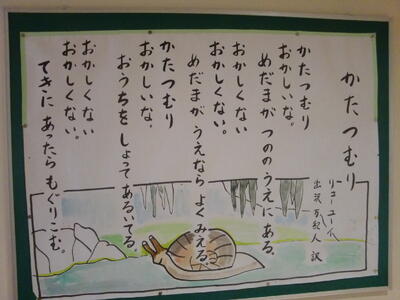 かたつむり
リュー ユーイ
出沢 万紀人 訳
かたつむり
おかしいな。
めだまが つのの うえに ある。
おかしくない
おかしくない。
めだまが うえなら よく みえる。
かたつむり
おかしいな。
おうちを しょって あるいてる。
おかしくない
おかしくない。
てきに あったら もぐりこむ。